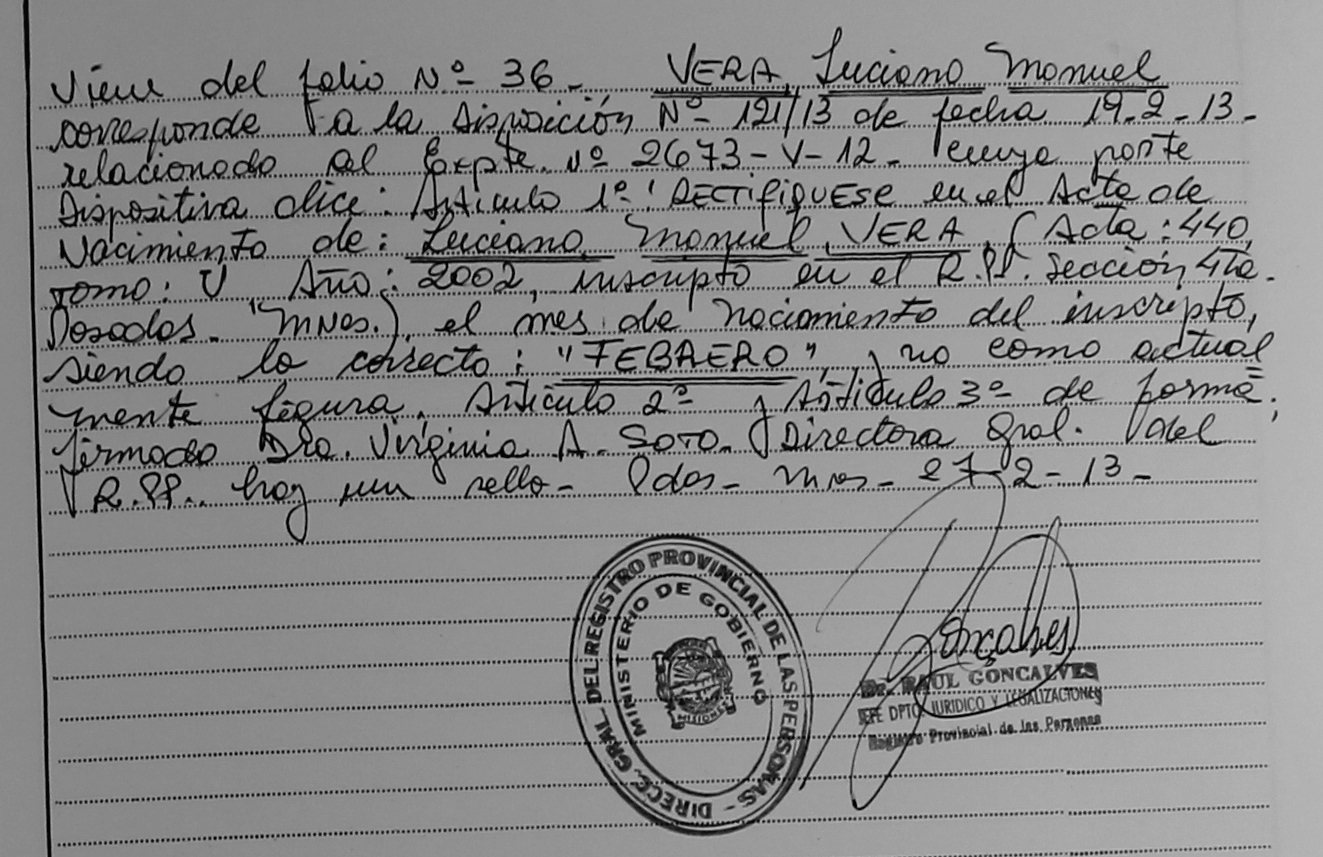 Viene del folio Nº 36_ VERA, Luciano Manuel
corresponde a la Disposición Nº 121/13 de fecha 19-2-13-
relacionado al Expte. Nº 2673-V-12- cuya parte
Dispositiva dice: Artículo 1º: RECTIFIQUESE en el Acta de
Nacimiento de: Luciano Manuel VERA, (Acta: 440,
Tomo: U Año: 2002, inscripto en el R.PP. Sección 4ta.
Posadas- Mnes.), el mes de nacimiento del inscripto,
siendo lo correcto: "FEBRERO", y no como actual=
mente figura. Artículo 2º y Artículo 3º de forma;
firmado Dra. Virginia A. Soto. Directora Gral. del
R.PP.. hay un sello- Pdas- Mnes- 27-2-13-
DIRECC. GRAL. DEL REGISTRO PROVINCIAL DE LAS PERSONAS -
MINISTERIO DE GOBIERNO
MISIONES
Goncalves
Dr. RAUL GONCALVES
JEFE DPTO. JURIDICO Y LEGALIZACIONES
Registro Provincial de las Personas